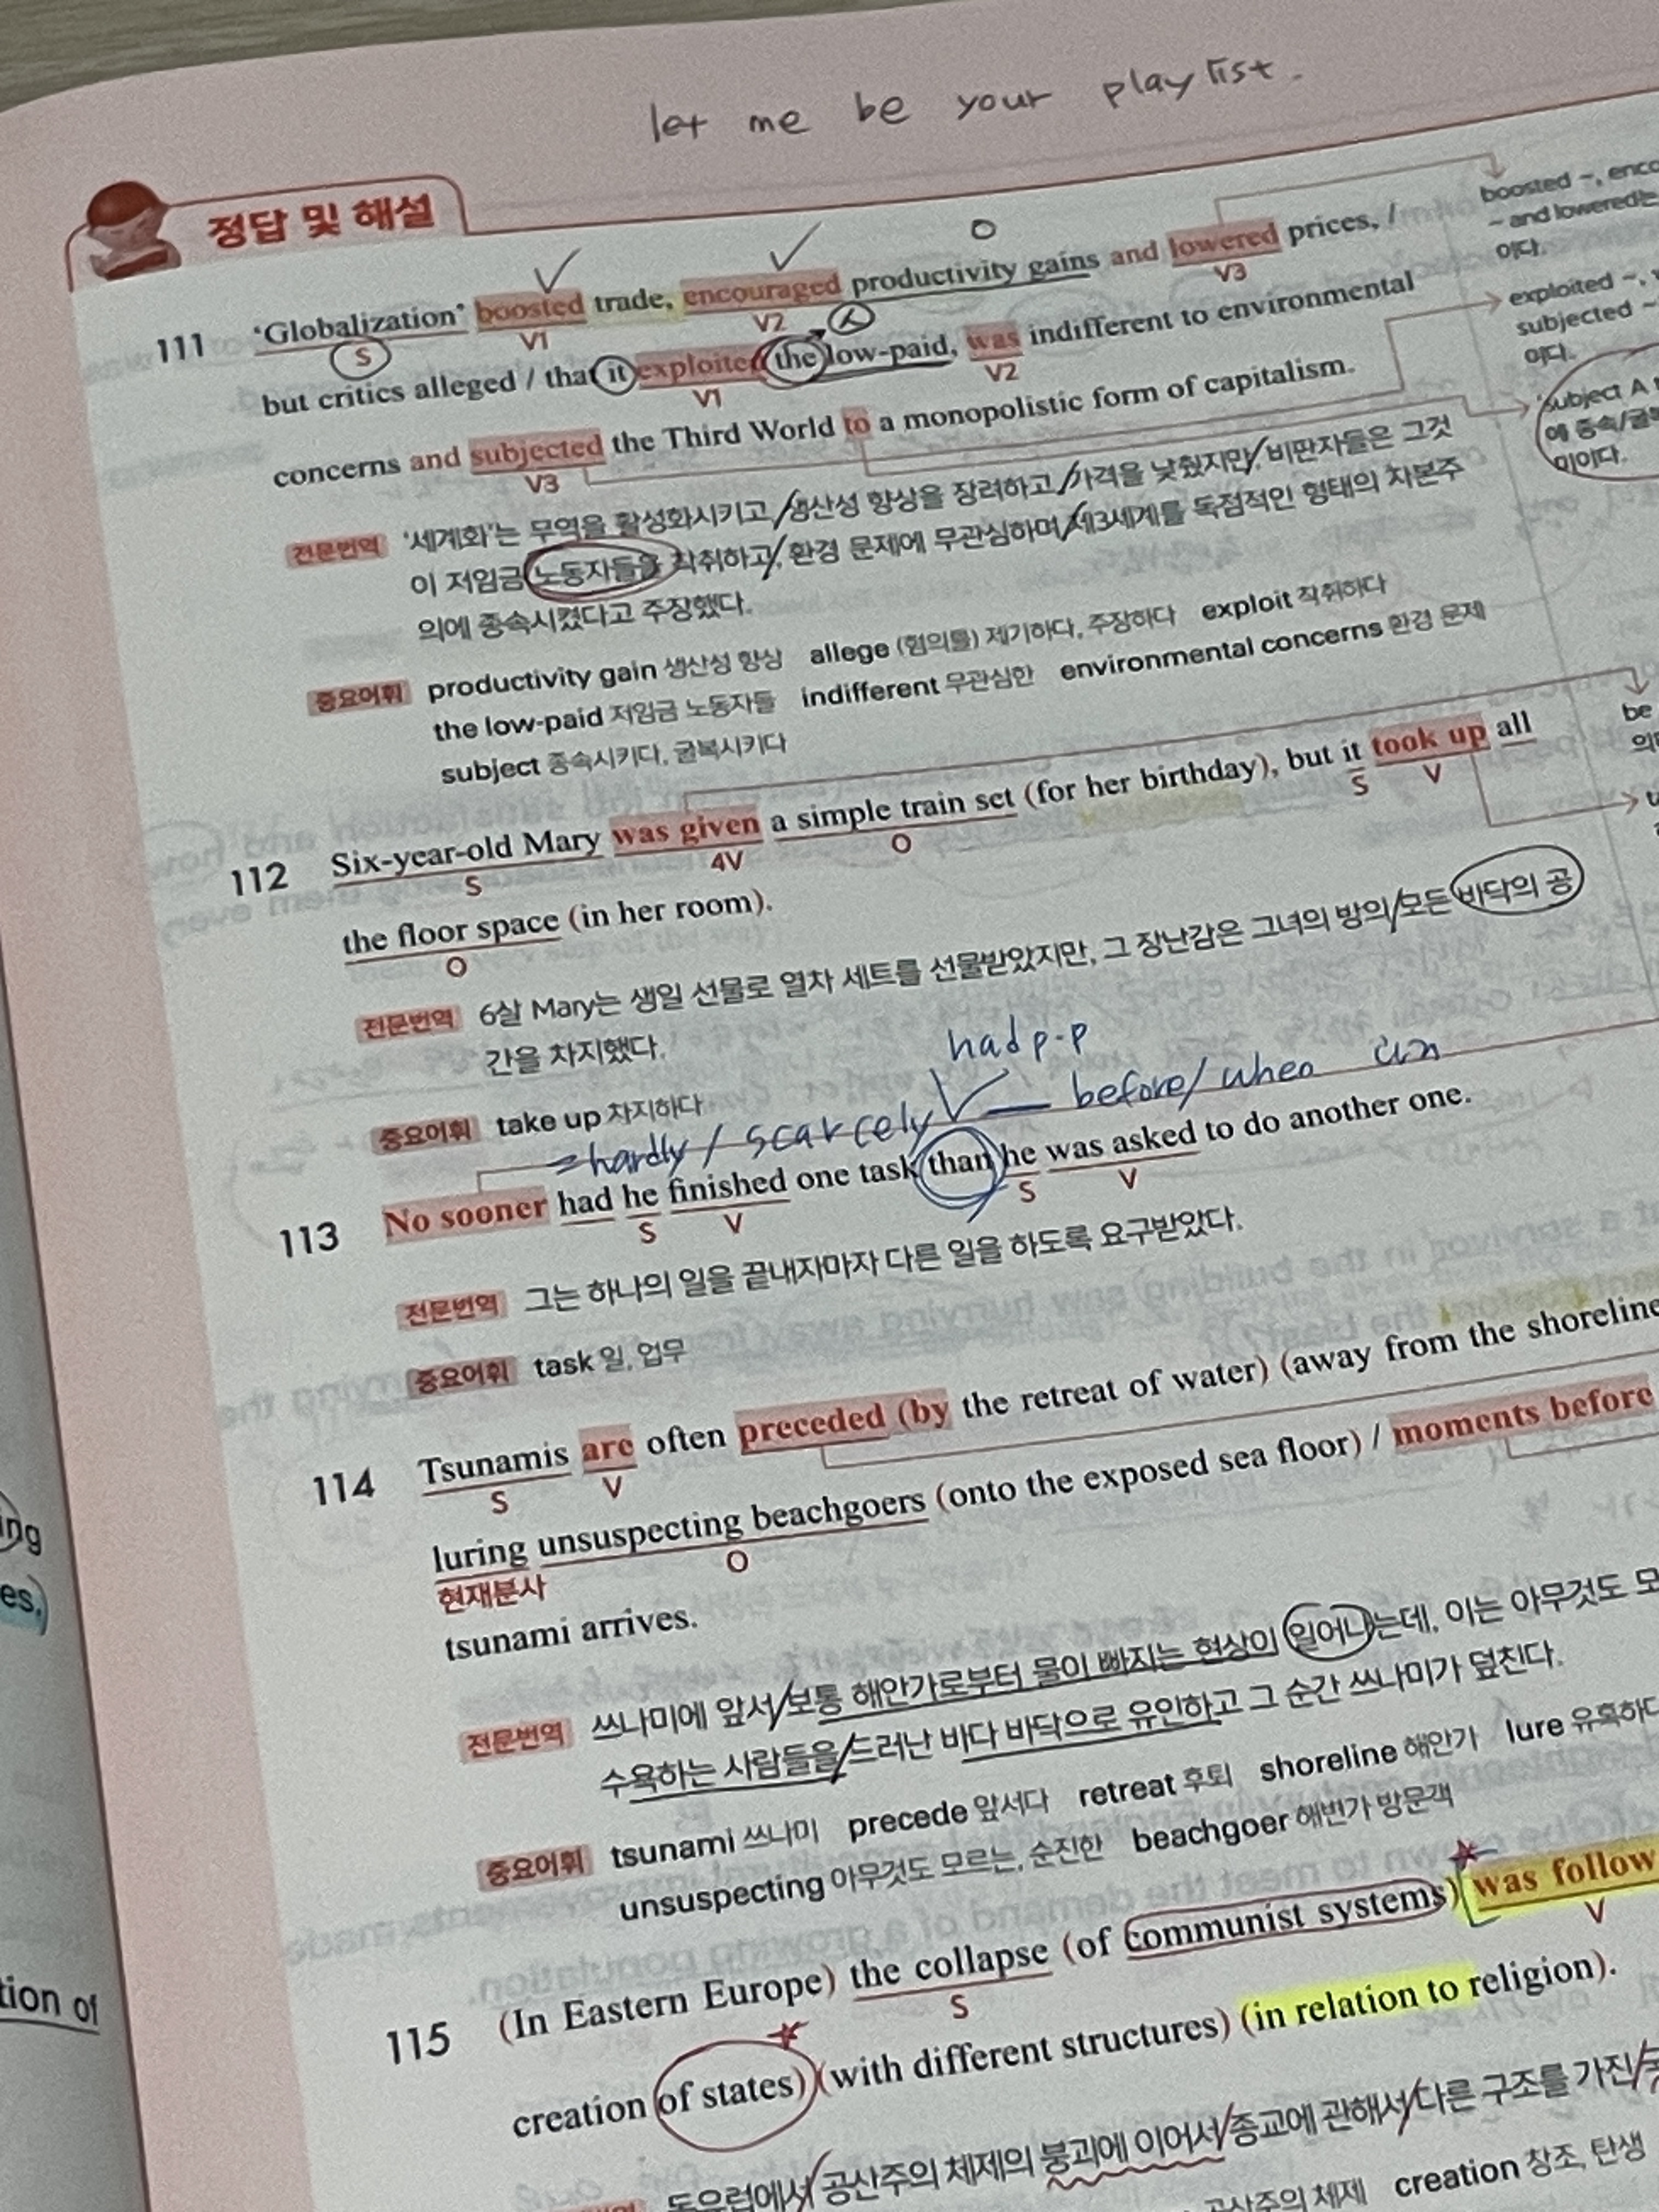 let me be your playlist.
정답 및 해설
boosted ~,
~ and lowered는
이다.
111 ‘Globalization’ boosted trade, encouraged productivity gains and lowered prices, /
S V1 V2 O V3
but critics alleged / that it exploited the low-paid, was indifferent to environmental
V1 V2
exploited ~,
subjected ~
이다.
concerns and subjected the Third World to a monopolistic form of capitalism.
V3
subject A
에 종속/굴복
미이다.
전문번역 ‘세계화’는 무역을 활성화시키고 생산성 향상을 장려하고 가격을 낮췄지만, 비판자들은 그것
이 저임금 노동자들을 착취하고, 환경 문제에 무관심하며 제3세계를 독점적인 형태의 자본주
의에 종속시켰다고 주장했다.
중요어휘 productivity gain 생산성 향상 allege (혐의를) 제기하다, 주장하다 exploit 착취하다
the low-paid 저임금 노동자들 indifferent 무관심한 environmental concerns 환경 문제
subject 종속시키다, 굴복시키다
be
112 Six-year-old Mary was given a simple train set (for her birthday), but it took up all
S 4V O S V
the floor space (in her room).
O
전문번역 6살 Mary는 생일 선물로 열차 세트를 선물받았지만, 그 장난감은 그녀의 방의 모든 바닥의 공
간을 차지했다.
중요어휘 take up 차지하다
had p.p
= hardly / scarcely V — before / when
113 No sooner had he finished one task than he was asked to do another one.
S V S V
전문번역 그는 하나의 일을 끝내자마자 다른 일을 하도록 요구받았다.
중요어휘 task 일, 업무
114 Tsunamis are often preceded (by the retreat of water) (away from the shoreline
S V
luring unsuspecting beachgoers (onto the exposed sea floor) / moments before
현재분사 O
tsunami arrives.
전문번역 쓰나미에 앞서 보통 해안가로부터 물이 빠지는 현상이 일어나는데, 이는 아무것도 모
수욕하는 사람들을 드러난 바다 바닥으로 유인하고 그 순간 쓰나미가 덮친다.
중요어휘 tsunami 쓰나미 precede 앞서다 retreat 후퇴 shoreline 해안가 lure 유혹하다
unsuspecting 아무것도 모르는, 순진한 beachgoer 해변가 방문객
115 (In Eastern Europe) the collapse (of communist systems) was follow
S V
creation of states) (with different structures) (in relation to religion).
동유럽에서 공산주의 체제의 붕괴에 이어서 종교에 관해서 다른 구조를 가진
공산주의 체제 creation 창조, 탄생
ing
es.
tion of